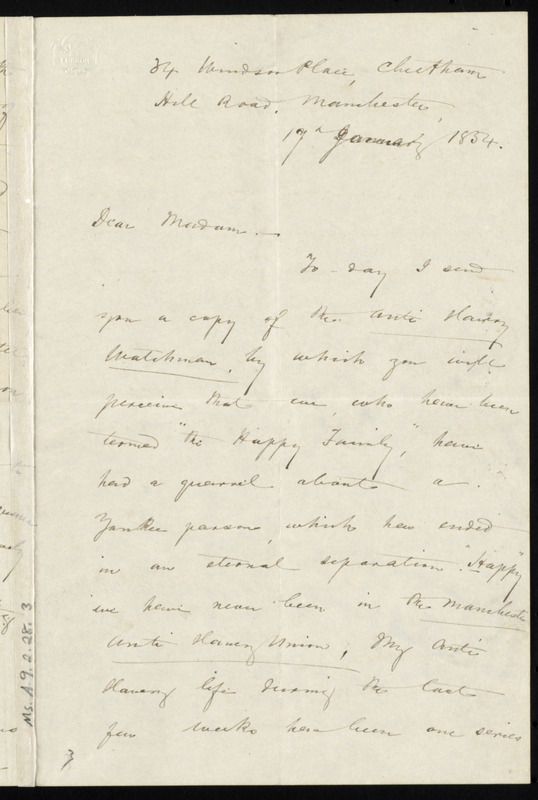 34 Windsor Place, Cheetham
Hill Road, Manchester,
17th January 1854.
Dear Madam. —
To-day I send
you a copy of the Anti Slavery
Watchman, by which you will
perceive that we, who have been
termed "the Happy Family," have
had a quarrel about a
Yankee parson, which has ended
in an eternal separation. "Happy"
we have never been in the Manchester
Anti Slavery Union, My Anti
Slavery life during the last
few weeks has been one series
Ms. A 9. 2. 28. 3
3